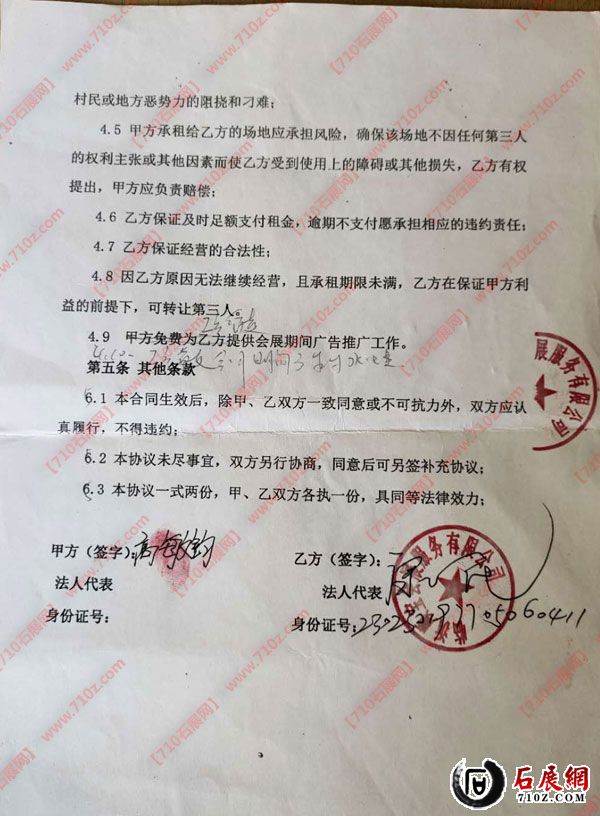 村民或地方恶势力的阻挠和刁难；
4.5 甲方承租给乙方的场地应承担风险，确保该场地不因任何第三人
的权利主张或其他因素而使乙方受到使用上的障碍或其他损失，乙方有权
提出，甲方应负责赔偿；
4.6 乙方保证及时足额支付租金，逾期不支付愿承担相应的违约责任；
4.7 乙方保证经营的合法性；
4.8 因乙方原因无法继续经营，且承租期限未满，乙方在保证甲方利
益的前提下，可转让第三人。
4.9 甲方免费为乙方提供会展期间广告推广工作。
第五条 其他条款
5.1 本合同生效后，除甲、乙双方一致同意或不可抗力外，双方应认
真履行，不得违约；
5.2 本协议未尽事宜，双方另行协商，同意后可另签补充协议；
5.3 本协议一式两份，甲、乙双方各执一份，具同等法律效力；
展服务有限公司
甲方（签字）：
乙方（签字）：
服务有限公司
法人代表
法人代表
身份证号：
身份证号：
【710石展网】 www.710z.com
石展網
710Z.COM